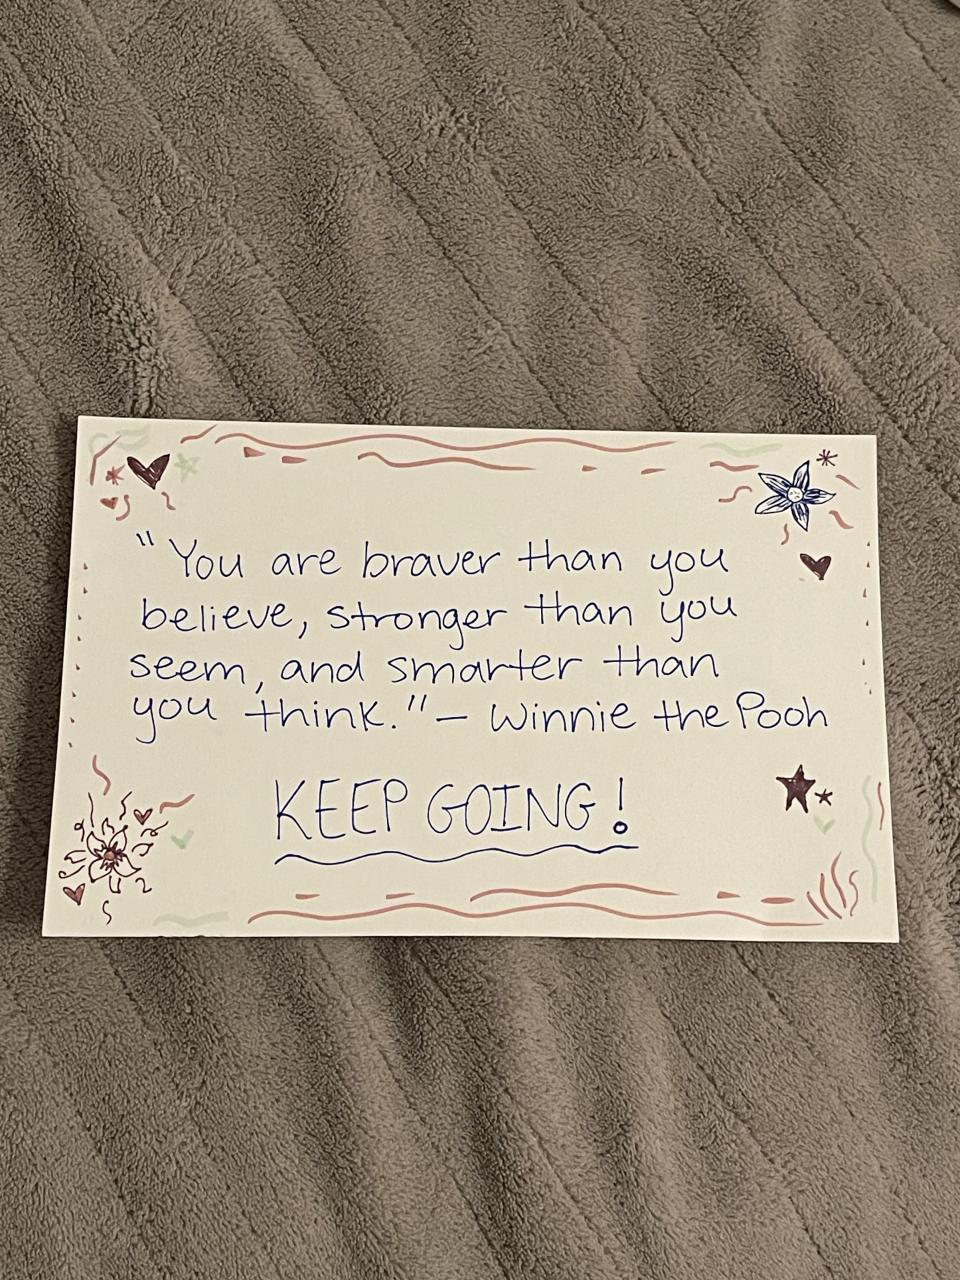 "You are braver than you
believe, stronger than you
seem, and smarter than
you think." - Winnie the Pooh
KEEP GOING!